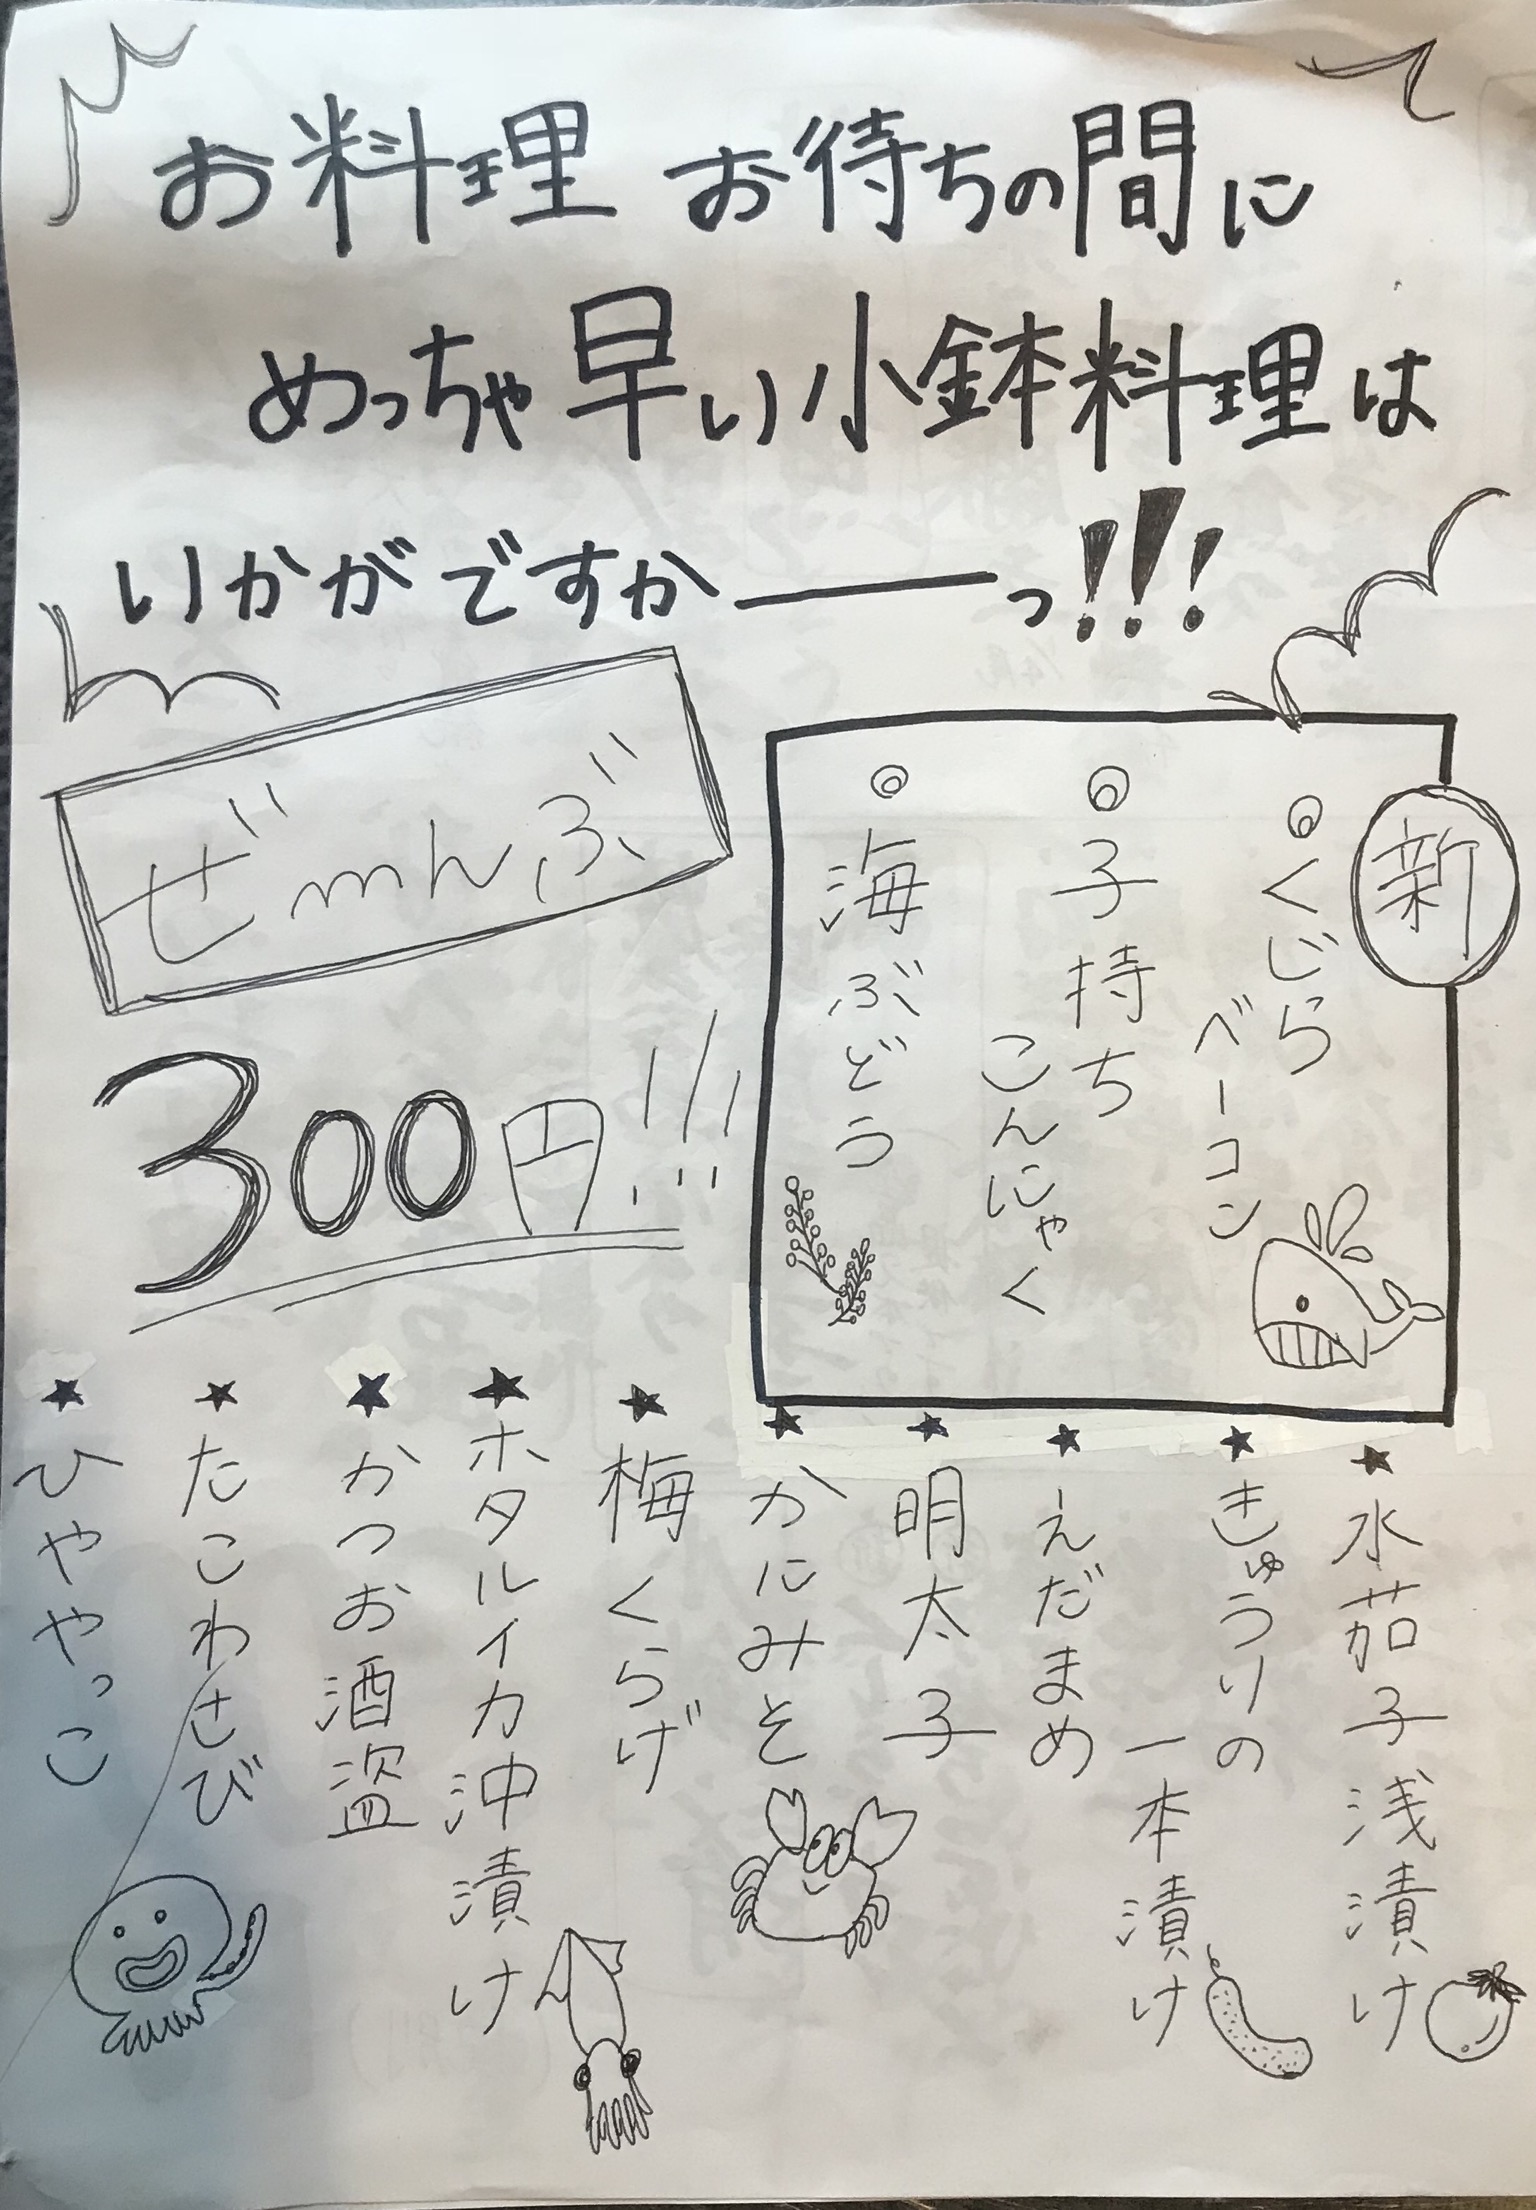 お料理 お待ちの間に
めっちゃ早い小鉢料理は
いかがですか――っ!!!
ぜ〰んぶ
300円!!!
新
◎くじら
ベーコン
◎子持ち
こんにゃく
◎海ぶどう
★水茄子浅漬け
★きゅうりの
一本漬け
★えだまめ
★明太子
★かにみそ
★梅くらげ
★ホタルイカ沖漬け
★かつお酒盗
★たこわさび
★ひややっこ